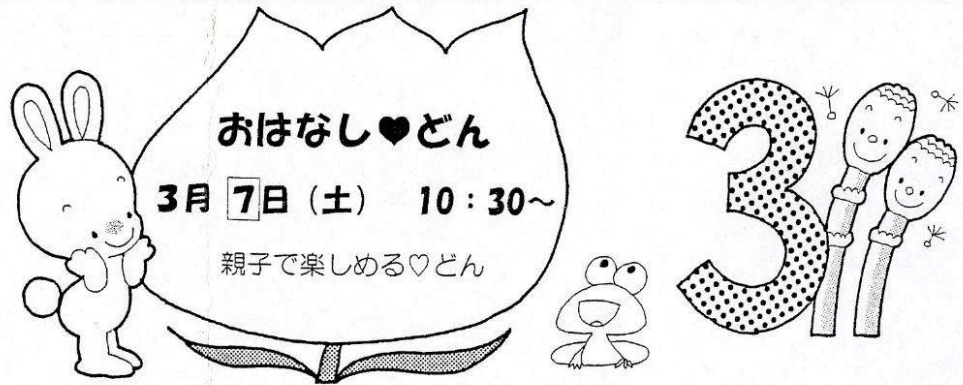 おはなし♥どん
3月 7日（土） 10：30～
親子で楽しめる♡どん
3